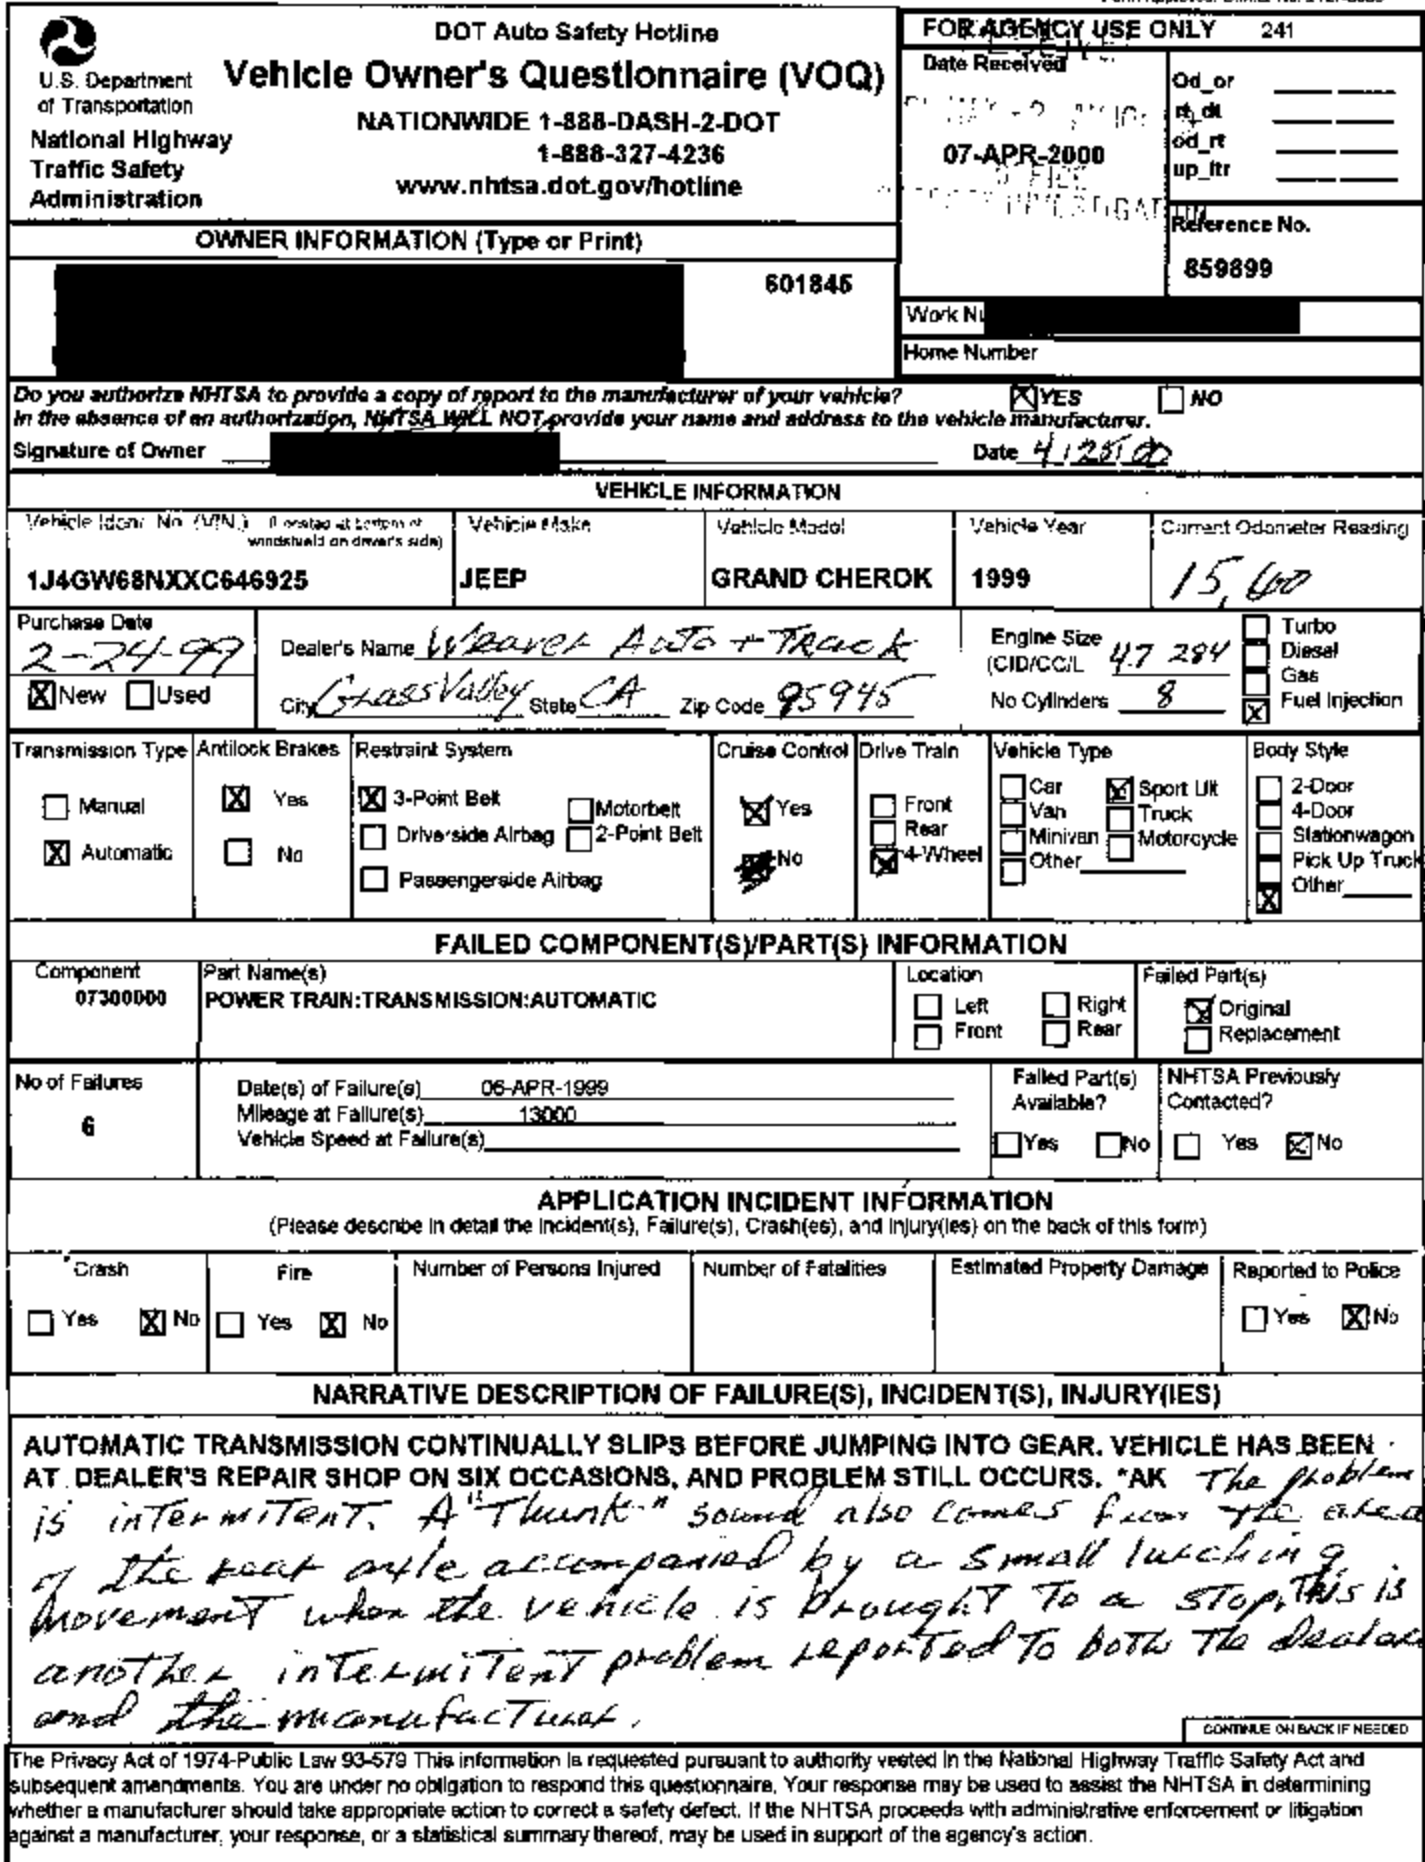 DOT Auto Safety Hotline
Vehicle Owner's Questionnaire (VOQ)
NATIONWIDE 1-888-DASH-2-DOT
1-888-327-4236
www.nhtsa.dot.gov/hotline
U.S. Department
of Transportation
National Highway
Traffic Safety
Administration
FOR AGENCY USE ONLY 241
Date Received
07-APR-2000
Od_or
rt_dt
od_rt
up_ltr
Reference No.
859899
OWNER INFORMATION (Type or Print)
601845
Work Nu
Home Number
Do you authorize NHTSA to provide a copy of report to the manufacturer of your vehicle? YES NO
In the absence of an authorization, NHTSA WILL NOT provide your name and address to the vehicle manufacturer.
Signature of Owner Date 4/25/00
VEHICLE INFORMATION
Vehicle Ident. No. (VIN.) (Located at bottom of
windshield on driver's side)
1J4GW68NXXC646925
Vehicle Make
JEEP
Vehicle Model
GRAND CHEROK
Vehicle Year
1999
Current Odometer Reading
15,600
Purchase Date
2-24-99
New Used
Dealer's Name Weaver Auto + Track
City Grass Valley State CA Zip Code 95945
Engine Size
(CID/CC/L 4.7 284
No Cylinders 8
Turbo
Diesel
Gas
Fuel Injection
Transmission Type
Manual
Automatic
Antilock Brakes
Yes
No
Restraint System
3-Point Belt
Motorbelt
Driverside Airbag
2-Point Belt
Passengerside Airbag
Cruise Control
Yes
No
Drive Train
Front
Rear
4-Wheel
Vehicle Type
Car Sport Ult
Van Truck
Minivan Motorcycle
Other
Body Style
2-Door
4-Door
Stationwagon
Pick Up Truck
Other
FAILED COMPONENT(S)/PART(S) INFORMATION
Component
07300000
Part Name(s)
POWER TRAIN:TRANSMISSION:AUTOMATIC
Location
Left Right
Front Rear
Failed Part(s)
Original
Replacement
No of Failures
6
Date(s) of Failure(s) 06-APR-1999
Mileage at Failure(s) 13000
Vehicle Speed at Failure(s)
Failed Part(s)
Available?
Yes No
NHTSA Previously
Contacted?
Yes No
APPLICATION INCIDENT INFORMATION
(Please describe in detail the Incident(s), Failure(s), Crash(es), and Injury(ies) on the back of this form)
Crash
Yes No
Fire
Yes No
Number of Persons Injured
Number of Fatalities
Estimated Property Damage
Reported to Police
Yes No
NARRATIVE DESCRIPTION OF FAILURE(S), INCIDENT(S), INJURY(IES)
AUTOMATIC TRANSMISSION CONTINUALLY SLIPS BEFORE JUMPING INTO GEAR. VEHICLE HAS BEEN
AT DEALER'S REPAIR SHOP ON SIX OCCASIONS, AND PROBLEM STILL OCCURS. *AK The problem
is intermitent. A "Thunk" sound also comes from the area
of the rear axle accompanied by a small lurching
movement when the vehicle is brought to a stop. This is
another intermitent problem reported to both the dealer
and the manufacturer.
CONTINUE ON BACK IF NEEDED
The Privacy Act of 1974-Public Law 93-579 This information is requested pursuant to authority vested in the National Highway Traffic Safety Act and
subsequent amendments. You are under no obligation to respond this questionnaire. Your response may be used to assist the NHTSA in determining
whether a manufacturer should take appropriate action to correct a safety defect. If the NHTSA proceeds with administrative enforcement or litigation
against a manufacturer, your response, or a statistical summary thereof, may be used in support of the agency's action.